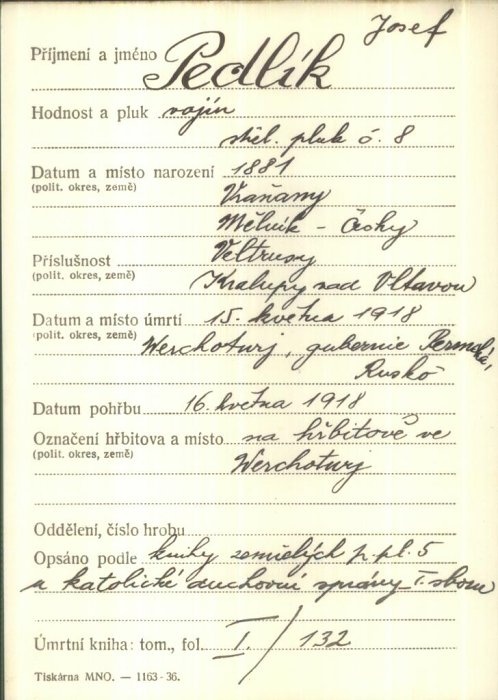 Josef
Příjmení a jméno Pedlík
Hodnost a pluk vojín
střel. pluk č. 8
Datum a místo narození 1881
(polit. okres, země) Vraňany
Mělník - Čechy
Příslušnost Veltrusy
(polit. okres, země) Kralupy nad Vltavou
Datum a místo úmrtí 15. května 1918
(polit. okres, země) Werchoturj, gubernie Permská,
Rusko
Datum pohřbu 16. května 1918
Označení hřbitova a místo na hřbitově ve
(polit. okres, země) Werchoturj
Oddělení, číslo hrobu
Opsáno podle knihy zemřelých p. pl. 5
u katolické duchovní správy I. sboru
Úmrtní kniha: tom., fol. I. / 132
Tiskárna MNO. — 1163-36.